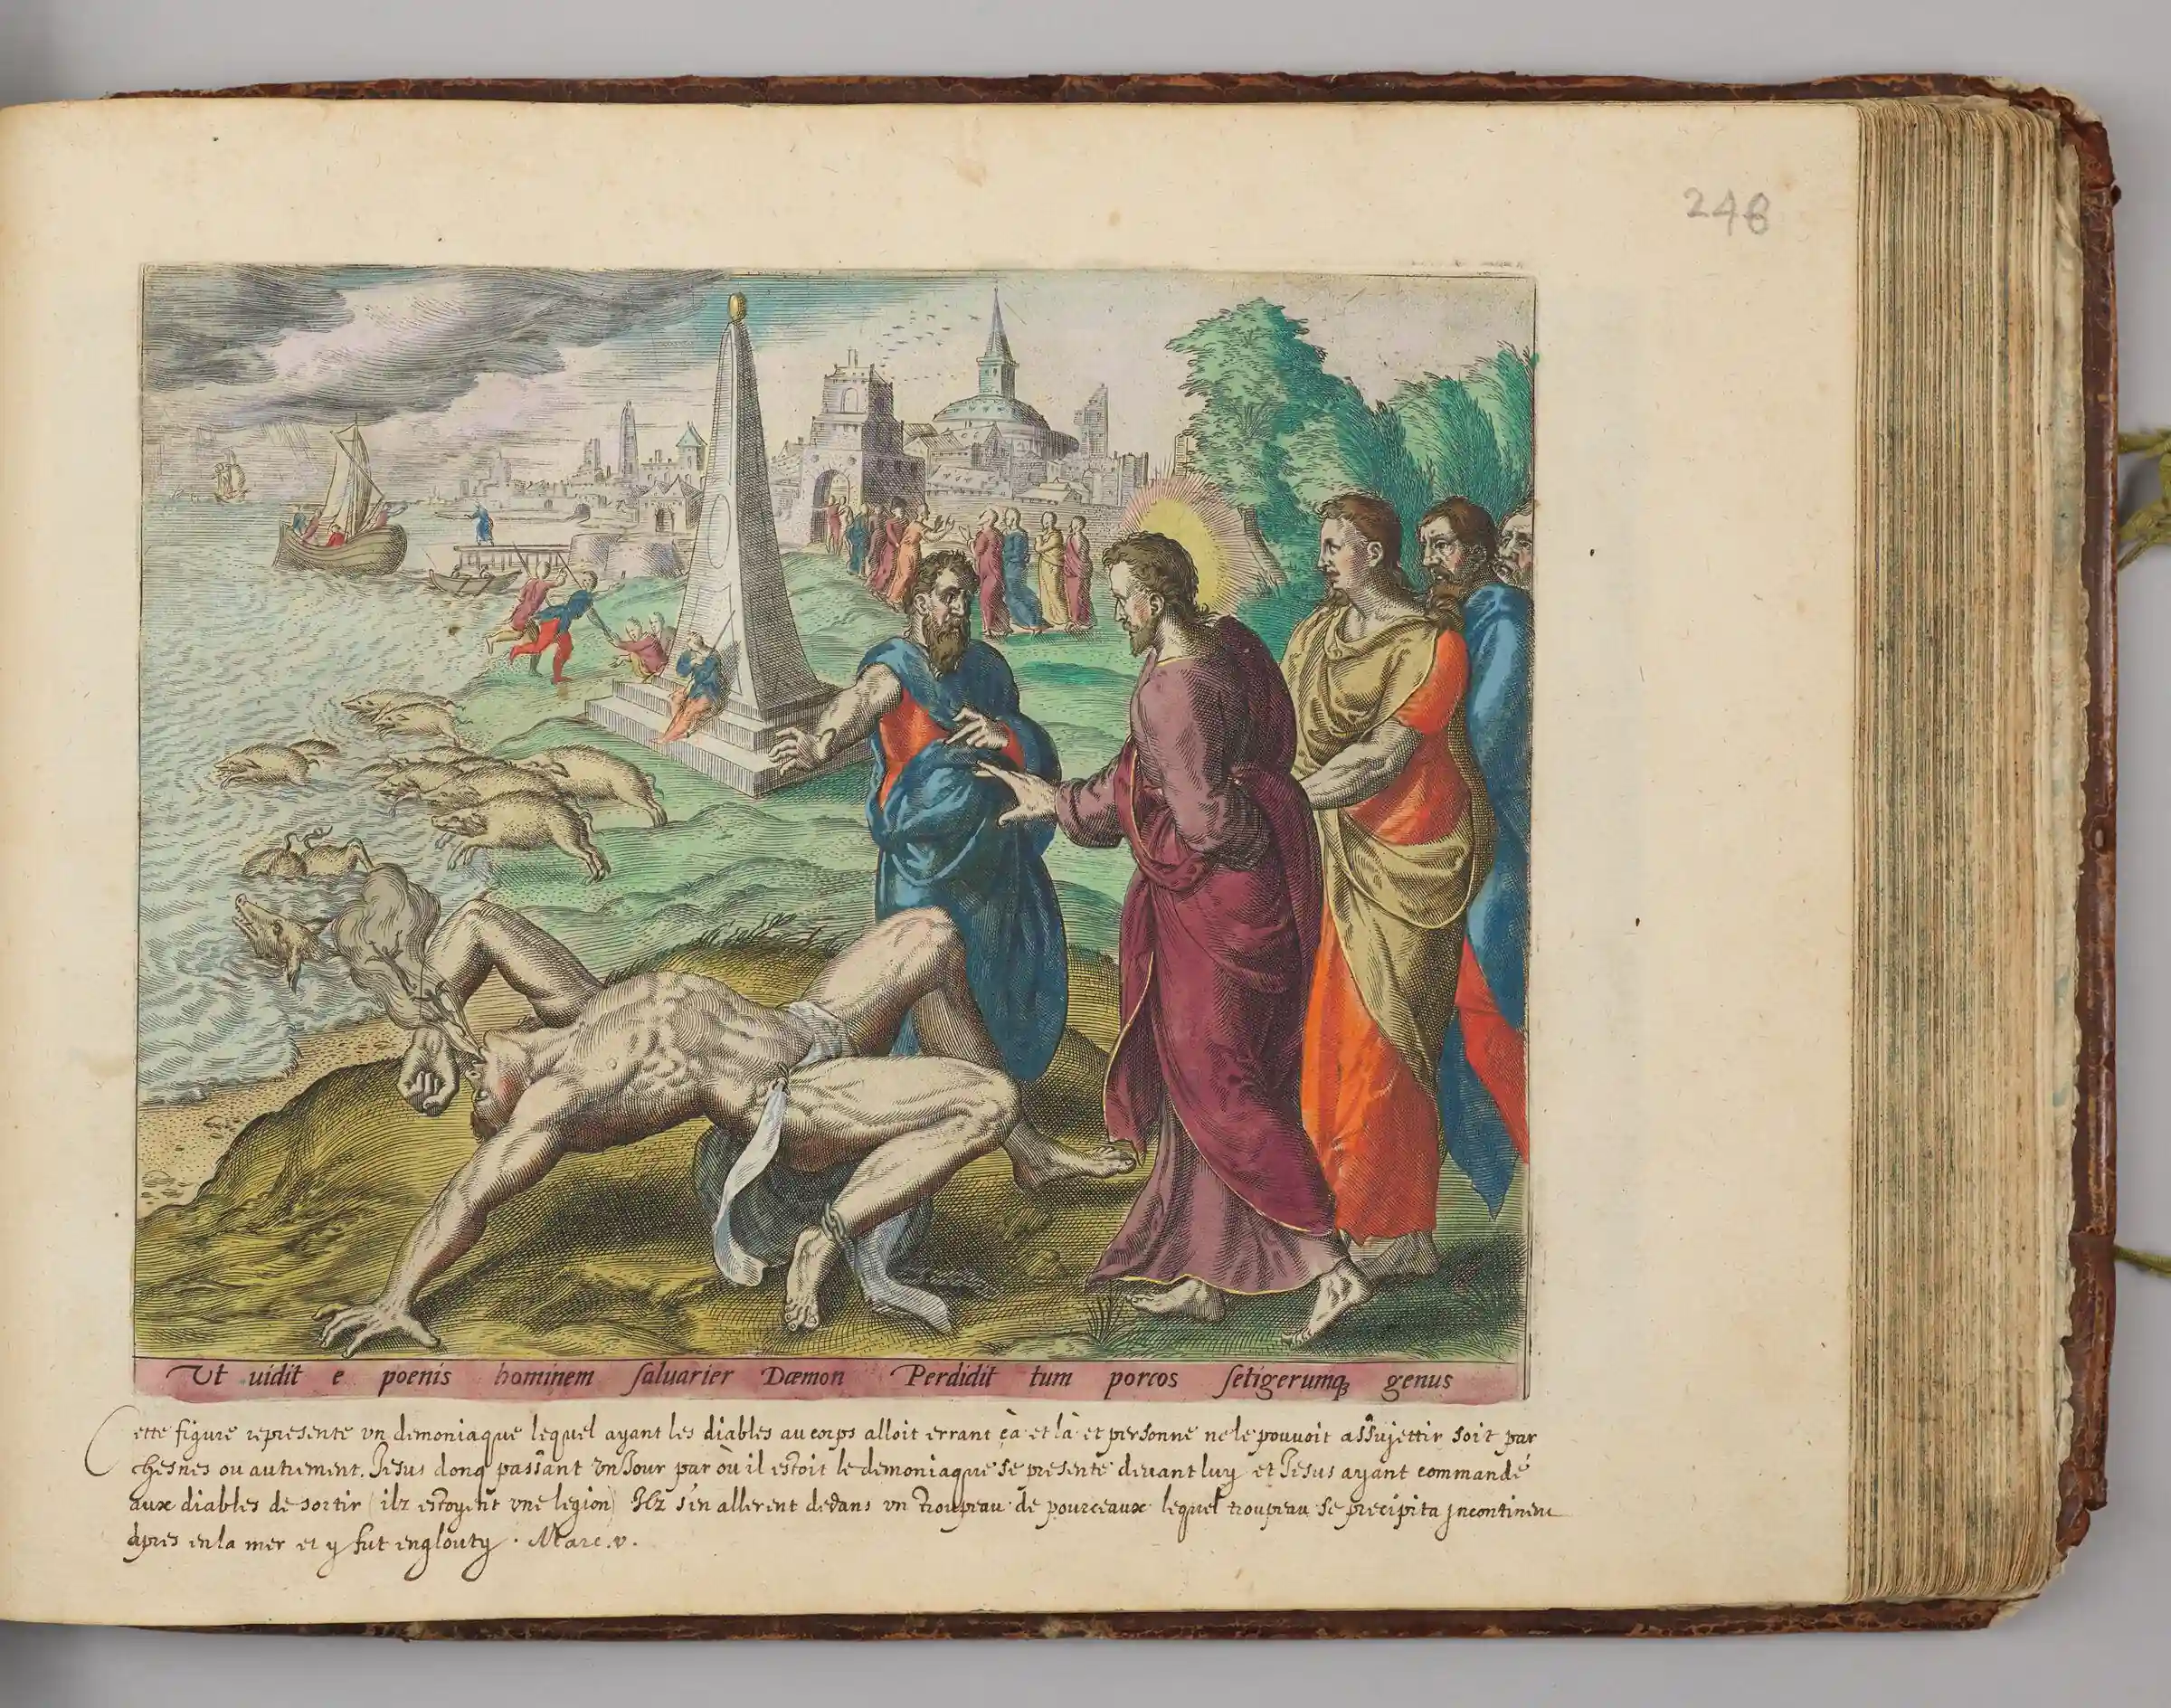 248
Ut uidit e poenis hominem saluarier Dæmon Perdidit tum porcos setigerumqȝ genus
Cette figure represente vn demoniaque lequel ayant les diables au corps alloit errant çà et là et personne ne le pouuoit assujettir soit par
chesnes ou autrement. Jesus donq passant vn Jour par où il estoit le demoniaque se presente deuant luy et Jesus ayant commandé
aux diables de sortir (ilz estoyent vne legion) Ilz s'en allerent dedans vn troupeau de pourceaux lequel troupeau se precipita jncontinent
apres en la mer et y fut englouty. Marc. v.